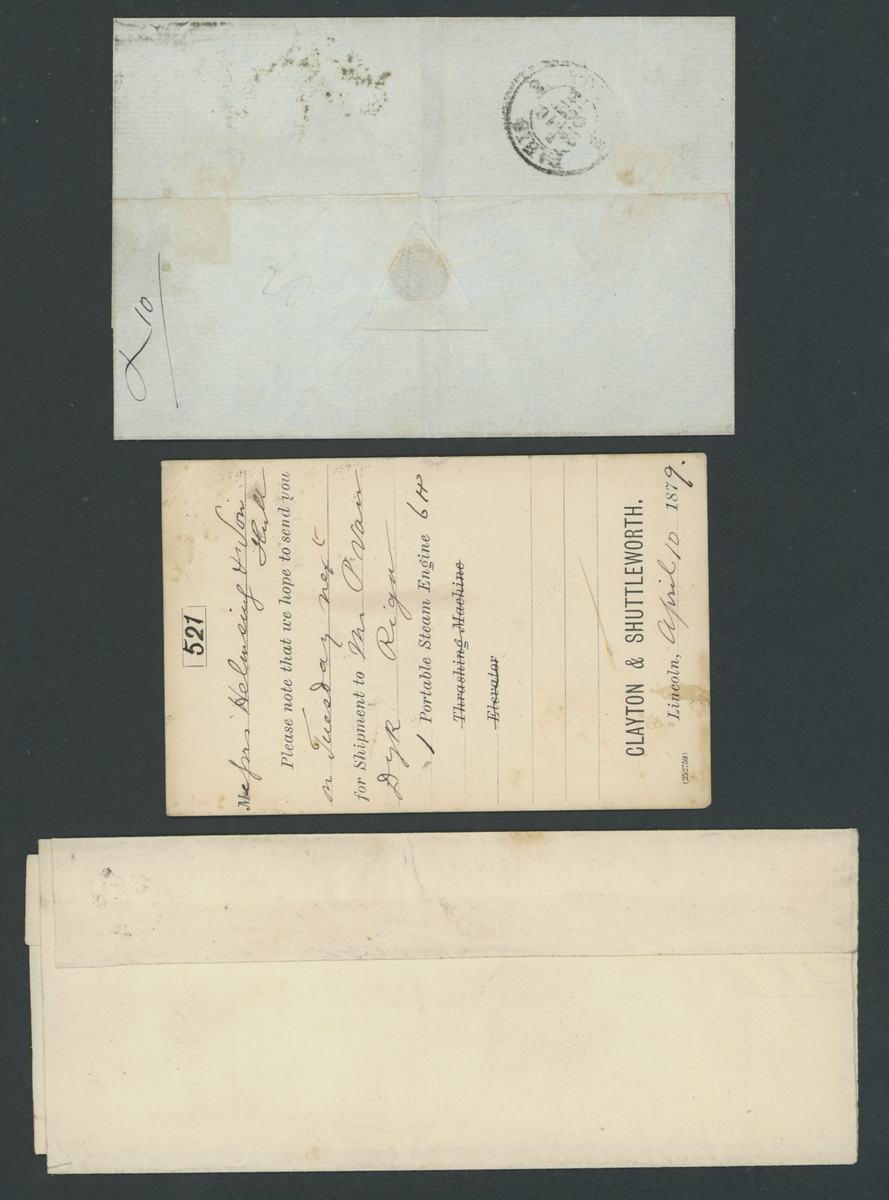 PARIS
£10
521
Messrs Helmsing & Son
Hull
Please note that we hope to send you
on Tuesday next
for Shipment to Mr P Van
Dyk Riga
1 Portable Steam Engine 6 H
Thrashing Machine
Elevator
CLAYTON & SHUTTLEWORTH.
Lincoln, April 10 1879.
(252759)